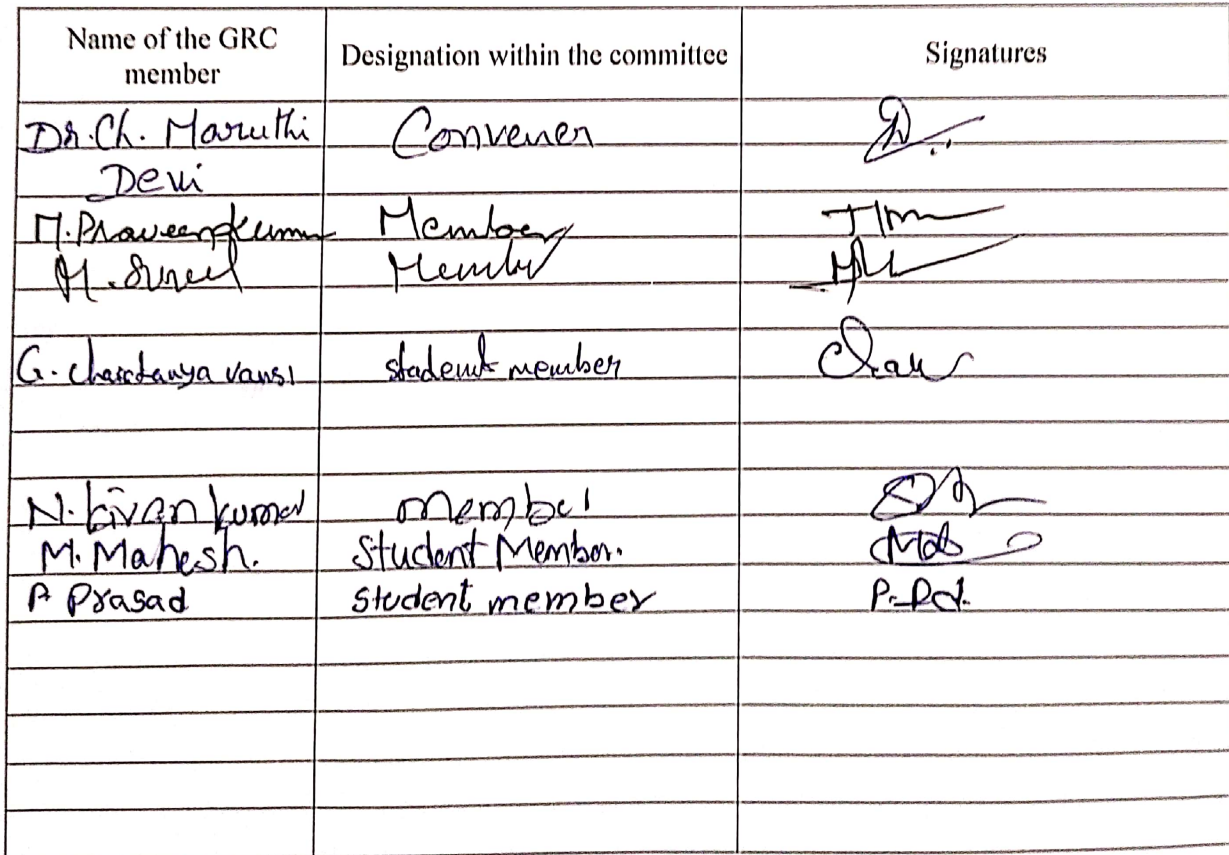 Name of the GRC
member
Designation within the committee
Signatures
Dr. Ch. Maruthi Convener
Devi
M. Praveenkumar Member
M. Member
G. chaitanya vamsi student member
N. kiran kumar member
M. Mahesh. Student Member.
P Prasad student member P.